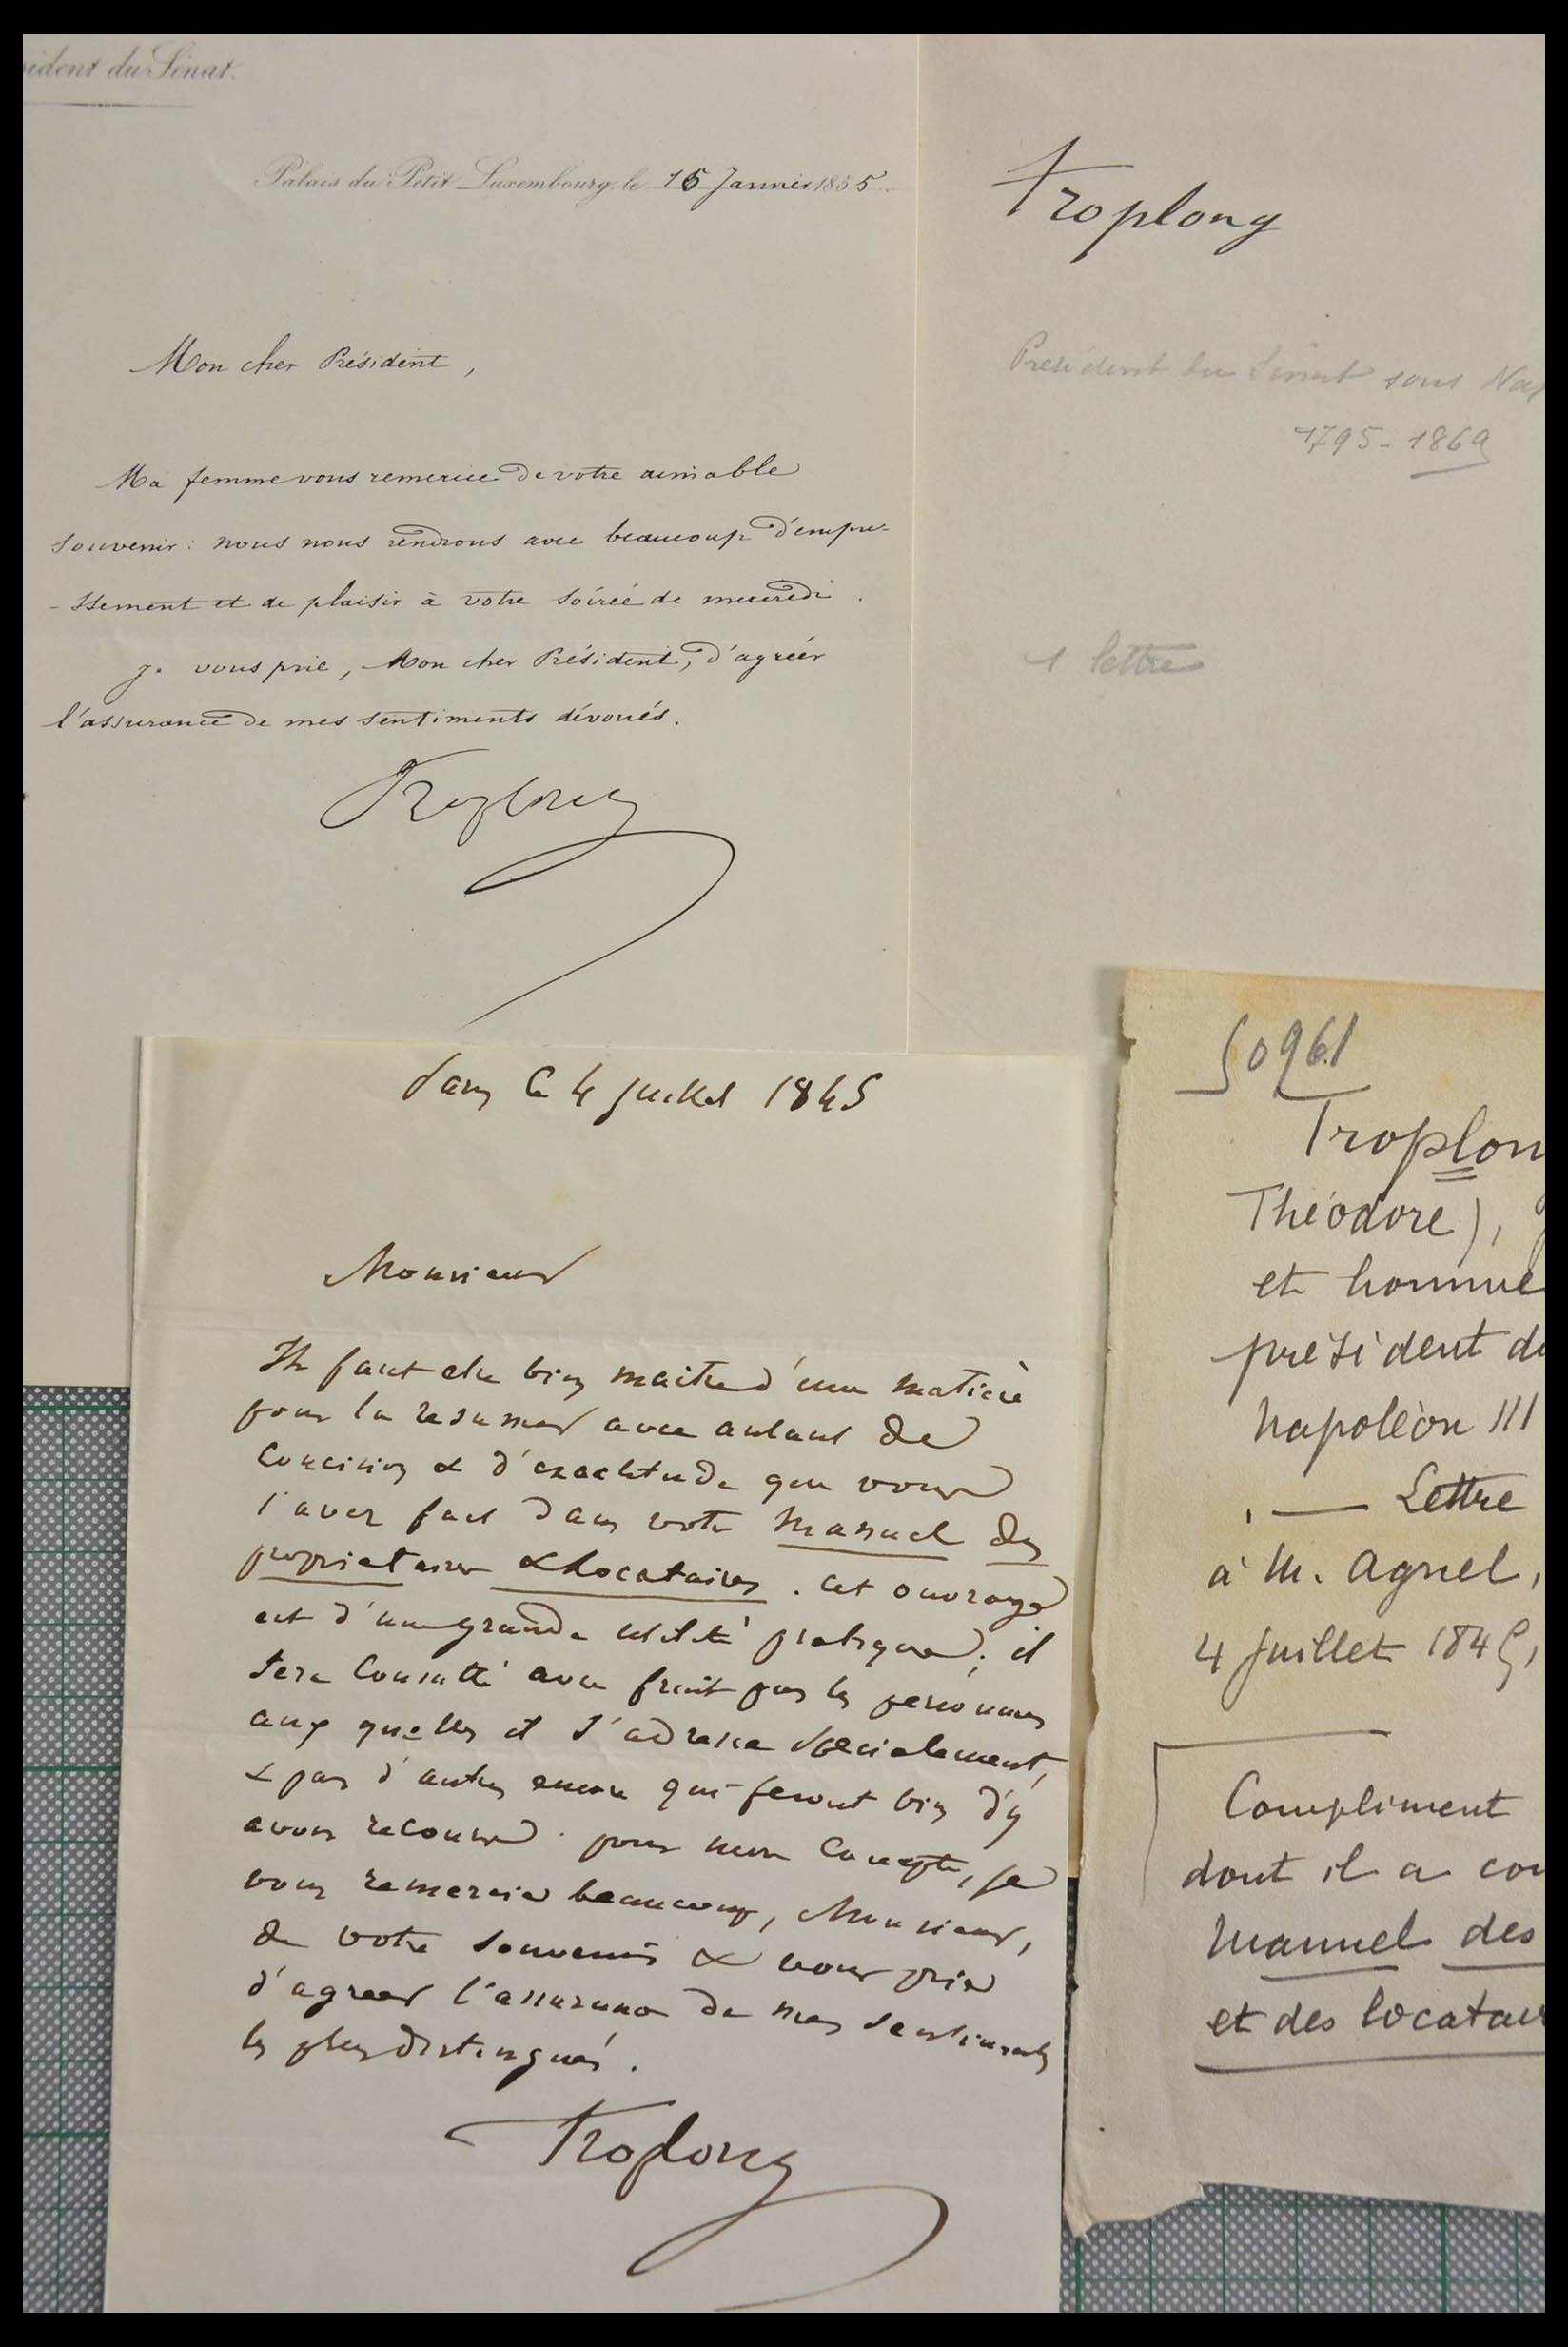 ident du Sénat.
Palais du Petit Luxembourg, le 16 Janvier 1855
Mon cher Président,
Ma femme vous remercie de votre aimable
souvenir : nous nous rendrons avec beaucoup d'empre-
-ssement et de plaisir à votre soirée de mercredi.
Je vous prie, Mon cher Président, d'agréer
l'assurance de mes sentiments dévoués.
Troplong
Troplong
Président du Sénat sous Nap
1795-1869
1 lettre
Paris le 4 juillet 1845
Monsieur
Il faut etre bien maitre d'une matière
pour la resumer avec autant de
concision & d'exactitude que vous
l'avez fait dans votre Manuel des
proprietaires & locataires. Cet ouvrage
est d'une grande utilité pratique ; il
sera consulté avec fruit par les personnes
aux quelles il s'adresse specialement,
& par d'autres encore qui feront bien d'y
avoir recours. pour mon compte, je
vous remercie beaucoup, Monsieur,
de votre souvenir & vous prie
d'agreer l'assurance de mes sentiments
les plus distingués.
Troplong
50961
Troplon
Théodore),
et homme
président de
Napoléon III
. — Lettre
à M. Agnel,
4 Juillet 1845,
Compliment
dont il a cou
Manuel des
et des locatair